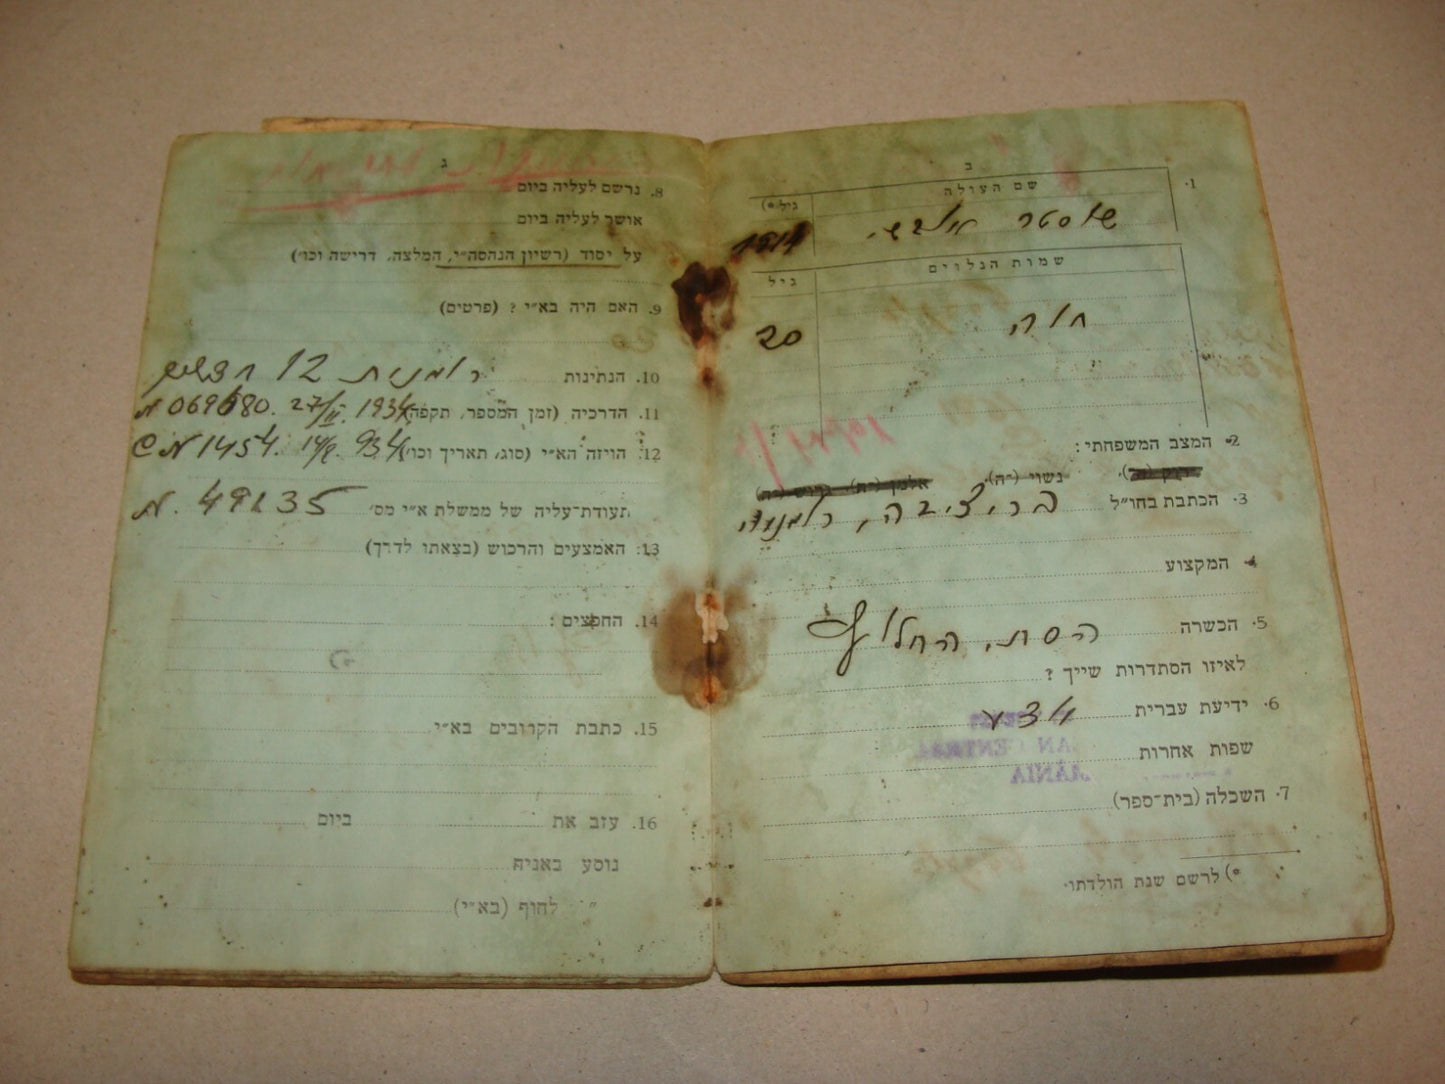 ב
1. שם העולה
גיל *)
שוסטר
1914
שמות הנלוים
גיל
חוה
20
2. המצב המשפחתי:
רוק (ה), נשוי (־ה), אלמן (־ה), גרוש (־ה)
3. הכתבת בחו״ל
רומניה
4. המקצוע
5. הכשרה הסת. החלוץ
לאיזו הסתדרות שייך?
6. ידיעת עברית
שפות אחרות
7. השכלה (בית־ספר)
*) לרשם שנת הולדתו.
ג
8. נרשם לעליה ביום
אושר לעליה ביום
על יסוד (רשיון הנהסה״י, המלצה, דרישה וכו׳)
9. האם היה בא״י? (פרטים)
10. הנתינות רומנית 12 חדשים
11. הדרכיה (זמן המספר, תקפה) N 069680. 27/II 1934
12. הויזה הא״י (סוג, תאריך וכו׳) C N 1454. 934
תעודת־עליה של ממשלת א״י מס׳ N.
13. האמצעים והרכוש (בצאתו לדרך)
14. החפצים:
15. כתבת הקרובים בא״י
16. עזב את ביום
נוסע באניה
״ לחוף (בא״י)